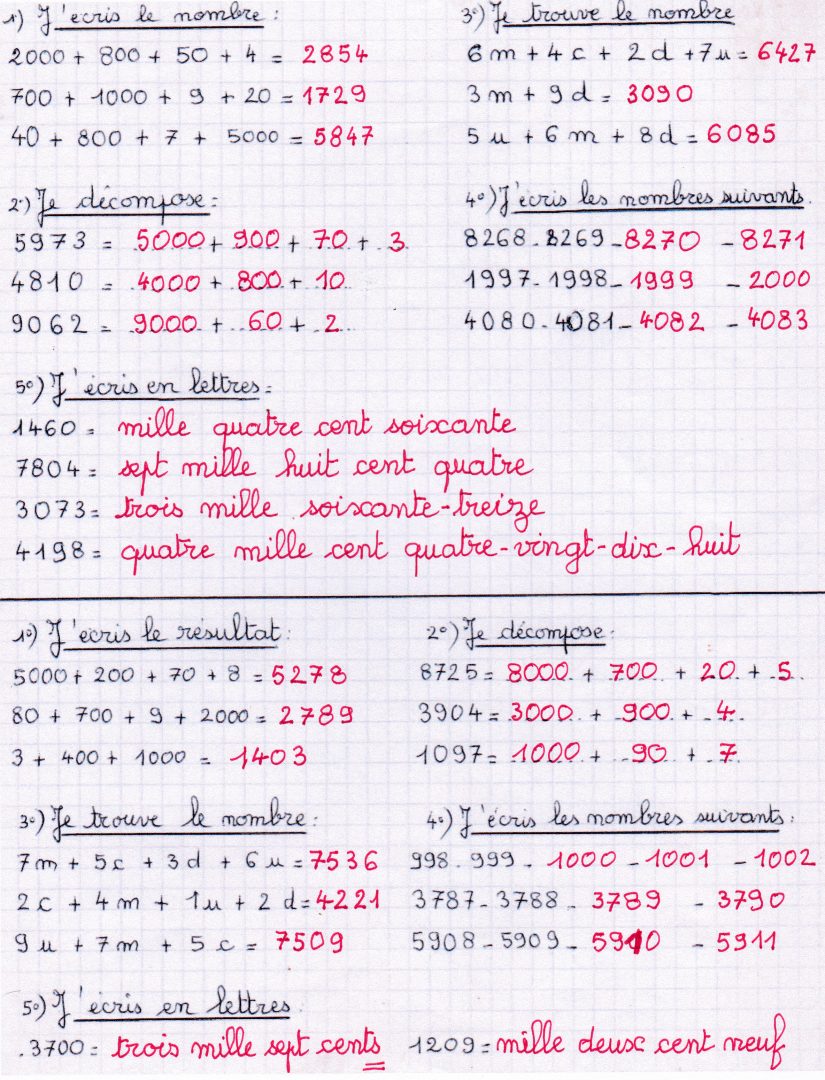 1) J'écris le nombre :
2000 + 800 + 50 + 4 = 2854
700 + 1000 + 9 + 20 = 1729
40 + 800 + 7 + 5000 = 5847
3°) Je trouve le nombre
6 m + 4 c + 2 d + 7 u = 6427
3 m + 9 d = 3090
5 u + 6 m + 8 d = 6085
2°) Je décompose :
5973 = 5000 + 900 + 70 + 3
4810 = 4000 + 800 + 10
9062 = 9000 + 60 + 2
4°) J'écris les nombres suivants.
8268 - 8269 - 8270 - 8271
1997 - 1998 - 1999 - 2000
4080 - 4081 - 4082 - 4083
5°) J'écris en lettres :
1460 = mille quatre cent soixante
7804 = sept mille huit cent quatre
3073 = trois mille soixante-treize
4198 = quatre mille cent quatre-vingt-dix-huit
1°) J'écris le résultat :
5000 + 200 + 70 + 8 = 5278
80 + 700 + 9 + 2000 = 2789
3 + 400 + 1000 = 1403
2°) Je décompose :
8725 = 8000 + 700 + 20 + 5
3904 = 3000 + 900 + 4
1097 = 1000 + 90 + 7
3°) Je trouve le nombre :
7 m + 5 c + 3 d + 6 u = 7536
2 c + 4 m + 1 u + 2 d = 4221
9 u + 7 m + 5 c = 7509
4°) J'écris les nombres suivants :
998 - 999 - 1000 - 1001 - 1002
3787 - 3788 - 3789 - 3790
5908 - 5909 - 5910 - 5911
5°) J'écris en lettres
3700 = trois mille sept cents
1209 = mille deux cent neuf